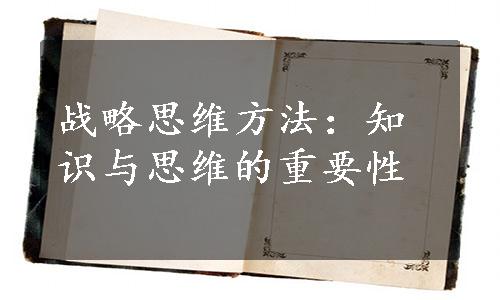 战略思维方法：知
识与思维的重要性